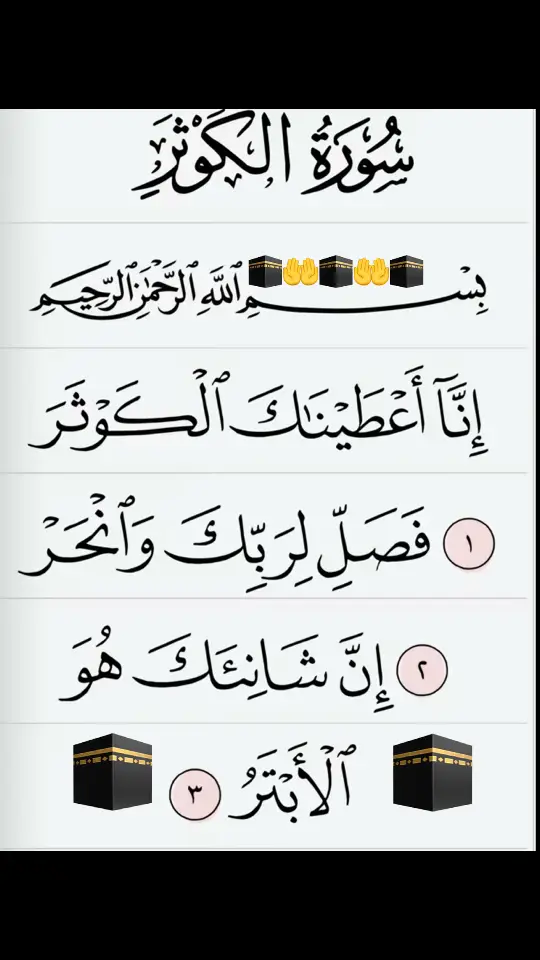 سُورَةُ الكَوْثَرِ
بِسْمِ ٱللَّهِ ٱلرَّحْمَٰنِ ٱلرَّحِيمِ
إِنَّآ أَعْطَيْنَٰكَ ٱلْكَوْثَرَ
١ فَصَلِّ لِرَبِّكَ وَٱنْحَرْ
٢ إِنَّ شَانِئَكَ هُوَ
ٱلْأَبْتَرُ ٣